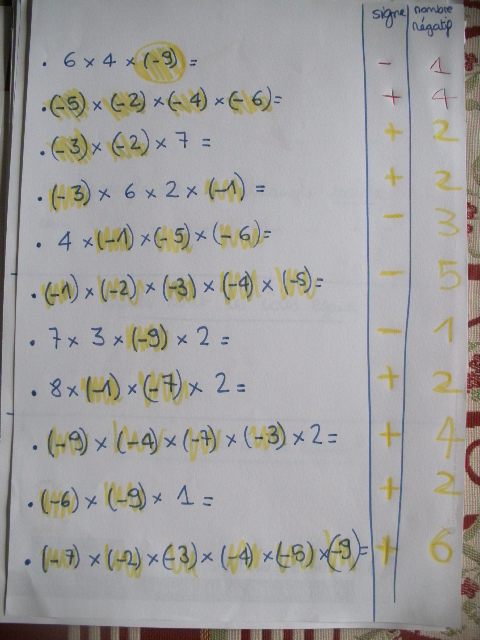 signe nombre négatif
. 6 × 4 × (-9) = - 1
. (-5) × (-2) × (-4) × (-6) = + 4
. (-3) × (-2) × 7 = + 2
. (-3) × 6 × 2 × (-1) = + 2
. 4 × (-1) × (-5) × (-6) = - 3
. (-1) × (-2) × (-3) × (-4) × (-5) = - 5
. 7 × 3 × (-9) × 2 = - 1
. 8 × (-1) × (-7) × 2 = + 2
. (-9) × (-4) × (-7) × (-3) × 2 = + 4
. (-6) × (-9) × 1 = + 2
. (-7) × (-2) × (-3) × (-4) × (-5) × (-9) = + 6